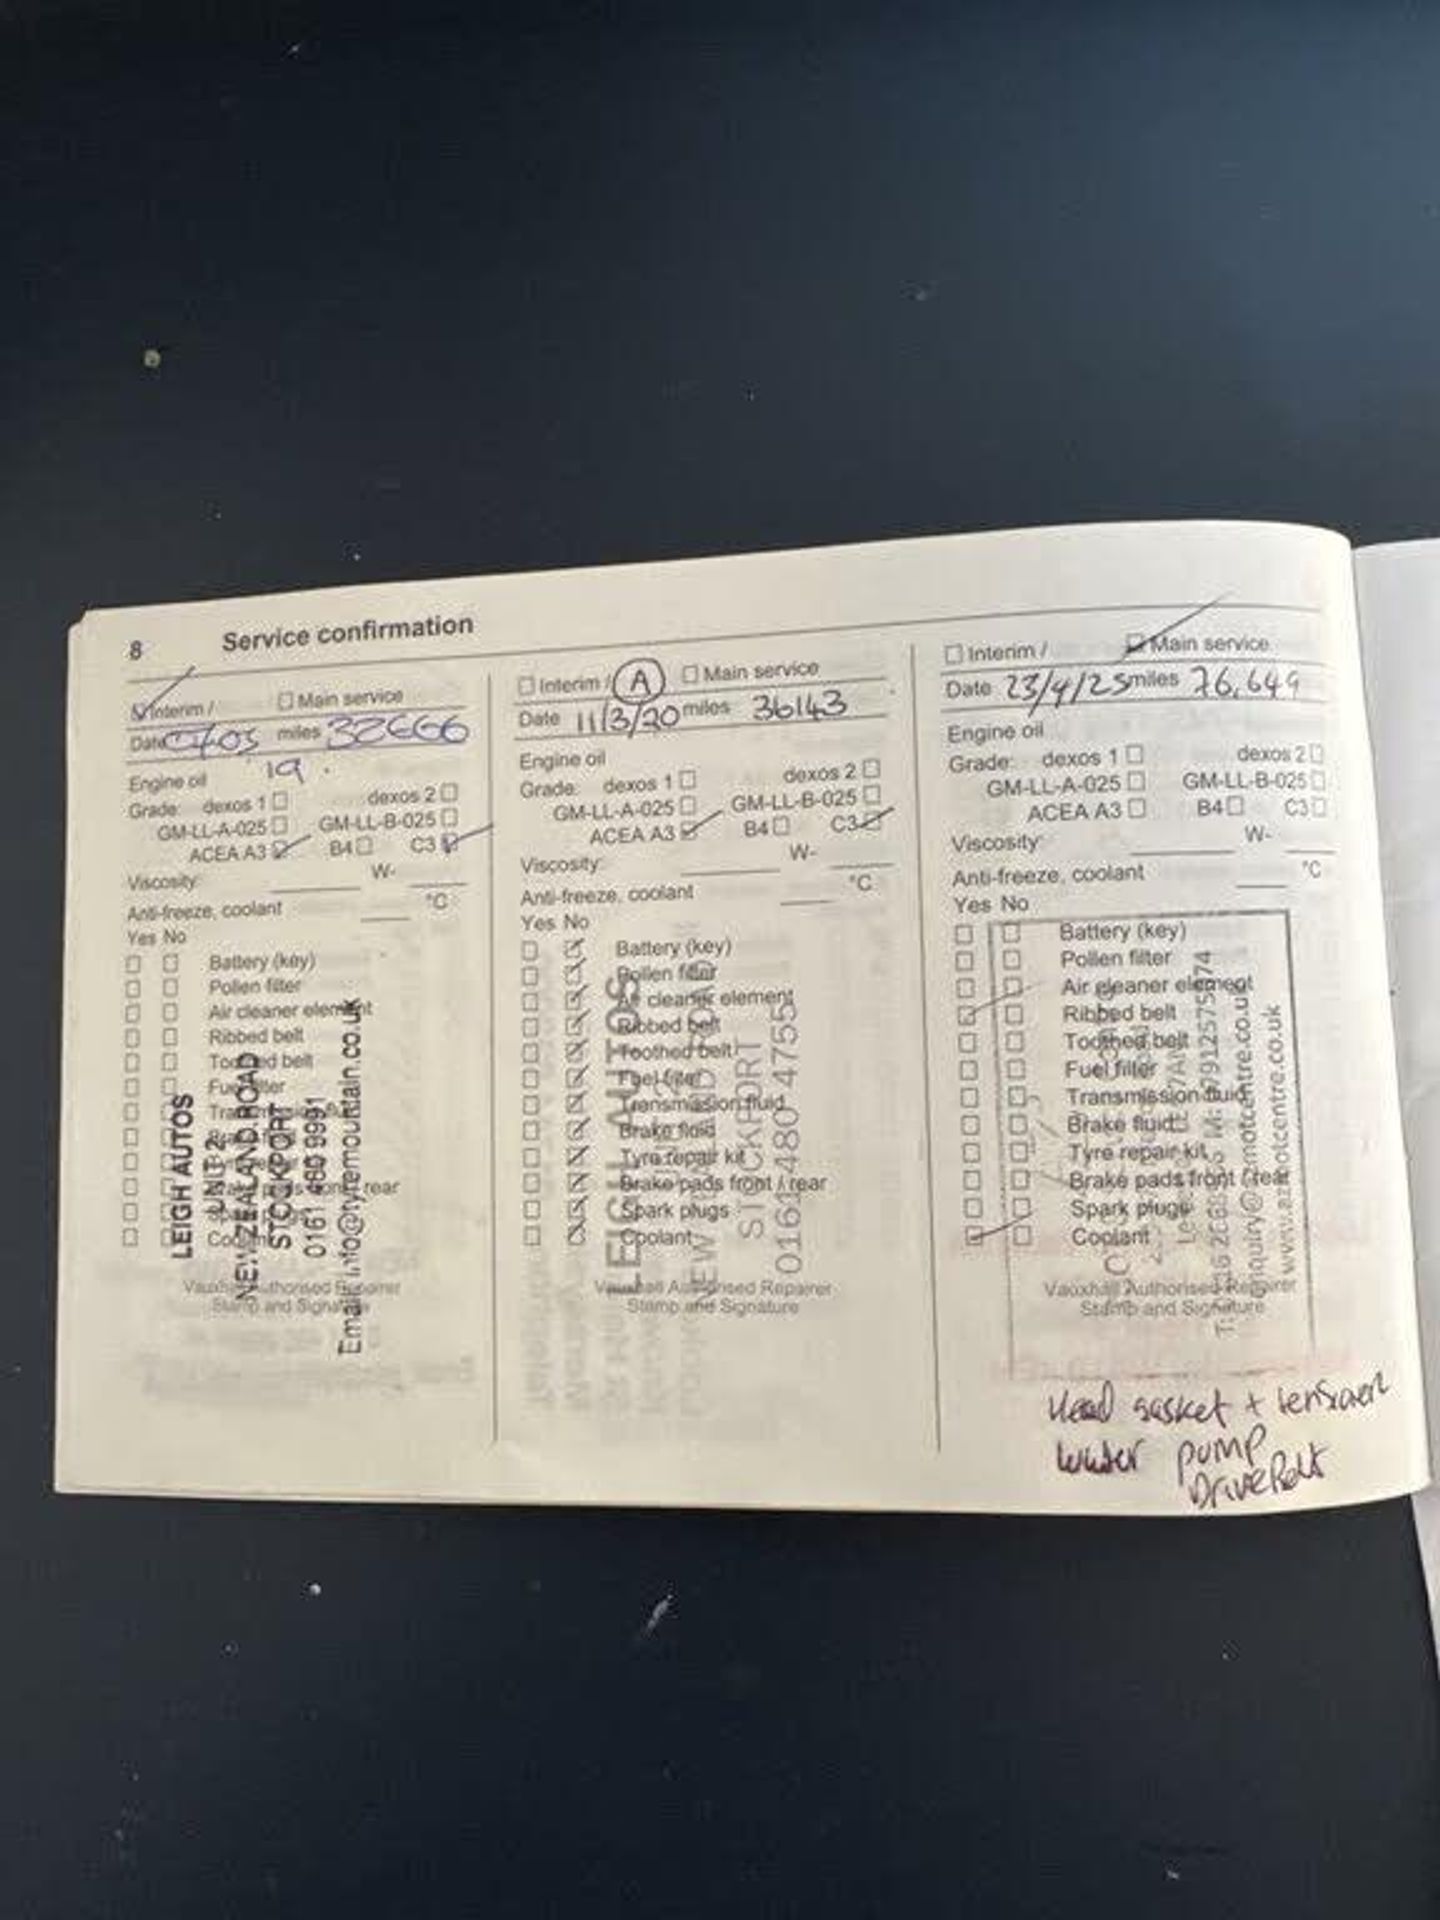 8 Service confirmation
☑ Interim / ☐ Main service
Date miles 32666
19.
Engine oil
Grade: dexos 1 ☐ dexos 2 ☐
GM-LL-A-025 ☐ GM-LL-B-025 ☐
ACEA A3 ☑ B4 ☐ C3 ☑
Viscosity: W-
Anti-freeze, coolant °C
Yes No
☐ ☐ Battery (key)
☐ ☐ Pollen filter
☐ ☐ Air cleaner element
☐ ☐ Ribbed belt
☐ ☐ Toothed belt
☐ ☐ Fuel filter
☐ ☐ Transmission fluid
☐ ☐ Brake fluid
☐ ☐ Tyre repair kit
☐ ☐ Brake pads front / rear
☐ ☐ Spark plugs
☐ ☐ Coolant
Vauxhall Authorised Repairer
Stamp and Signature
LEIGH AUTOS
UNIT 2
NEW ZEALAND ROAD
STOCKPORT
0161 480 9991
Email: info@tyremountain.co.uk
☐ Interim / A ☐ Main service
Date 11/3/20 miles 36143
Engine oil
Grade: dexos 1 ☐ dexos 2 ☐
GM-LL-A-025 ☐ GM-LL-B-025 ☐
ACEA A3 ☑ B4 ☐ C3 ☑
Viscosity: W-
Anti-freeze, coolant °C
Yes No
☐ ☑ Battery (key)
☐ ☑ Pollen filter
☐ ☑ Air cleaner element
☐ ☑ Ribbed belt
☐ ☑ Toothed belt
☐ ☑ Fuel filter
☐ ☑ Transmission fluid
☐ ☑ Brake fluid
☐ ☑ Tyre repair kit
☐ ☑ Brake pads front / rear
☐ ☑ Spark plugs
☐ ☑ Coolant
Vauxhall Authorised Repairer
Stamp and Signature
LEIGH AUTOS
NEW ZEALAND ROAD
STOCKPORT
0161 480 4755
☐ Interim / ☑ Main service
Date 23/4/25 miles 76,649
Engine oil
Grade: dexos 1 ☐ dexos 2 ☐
GM-LL-A-025 ☐ GM-LL-B-025 ☐
ACEA A3 ☐ B4 ☐ C3 ☐
Viscosity: W-
Anti-freeze, coolant °C
Yes No
☐ ☐ Battery (key)
☐ ☐ Pollen filter
☐ ☐ Air cleaner element
☑ ☐ Ribbed belt
☐ ☐ Toothed belt
☐ ☐ Fuel filter
☐ ☐ Transmission fluid
☐ ☐ Brake fluid
☐ ☐ Tyre repair kit
☐ ☐ Brake pads front / rear
☐ ☐ Spark plugs
☑ ☐ Coolant
Vauxhall Authorised Repairer
Stamp and Signature
www.azmotcentre.co.uk
Head gasket +
water pump
Drive Belt